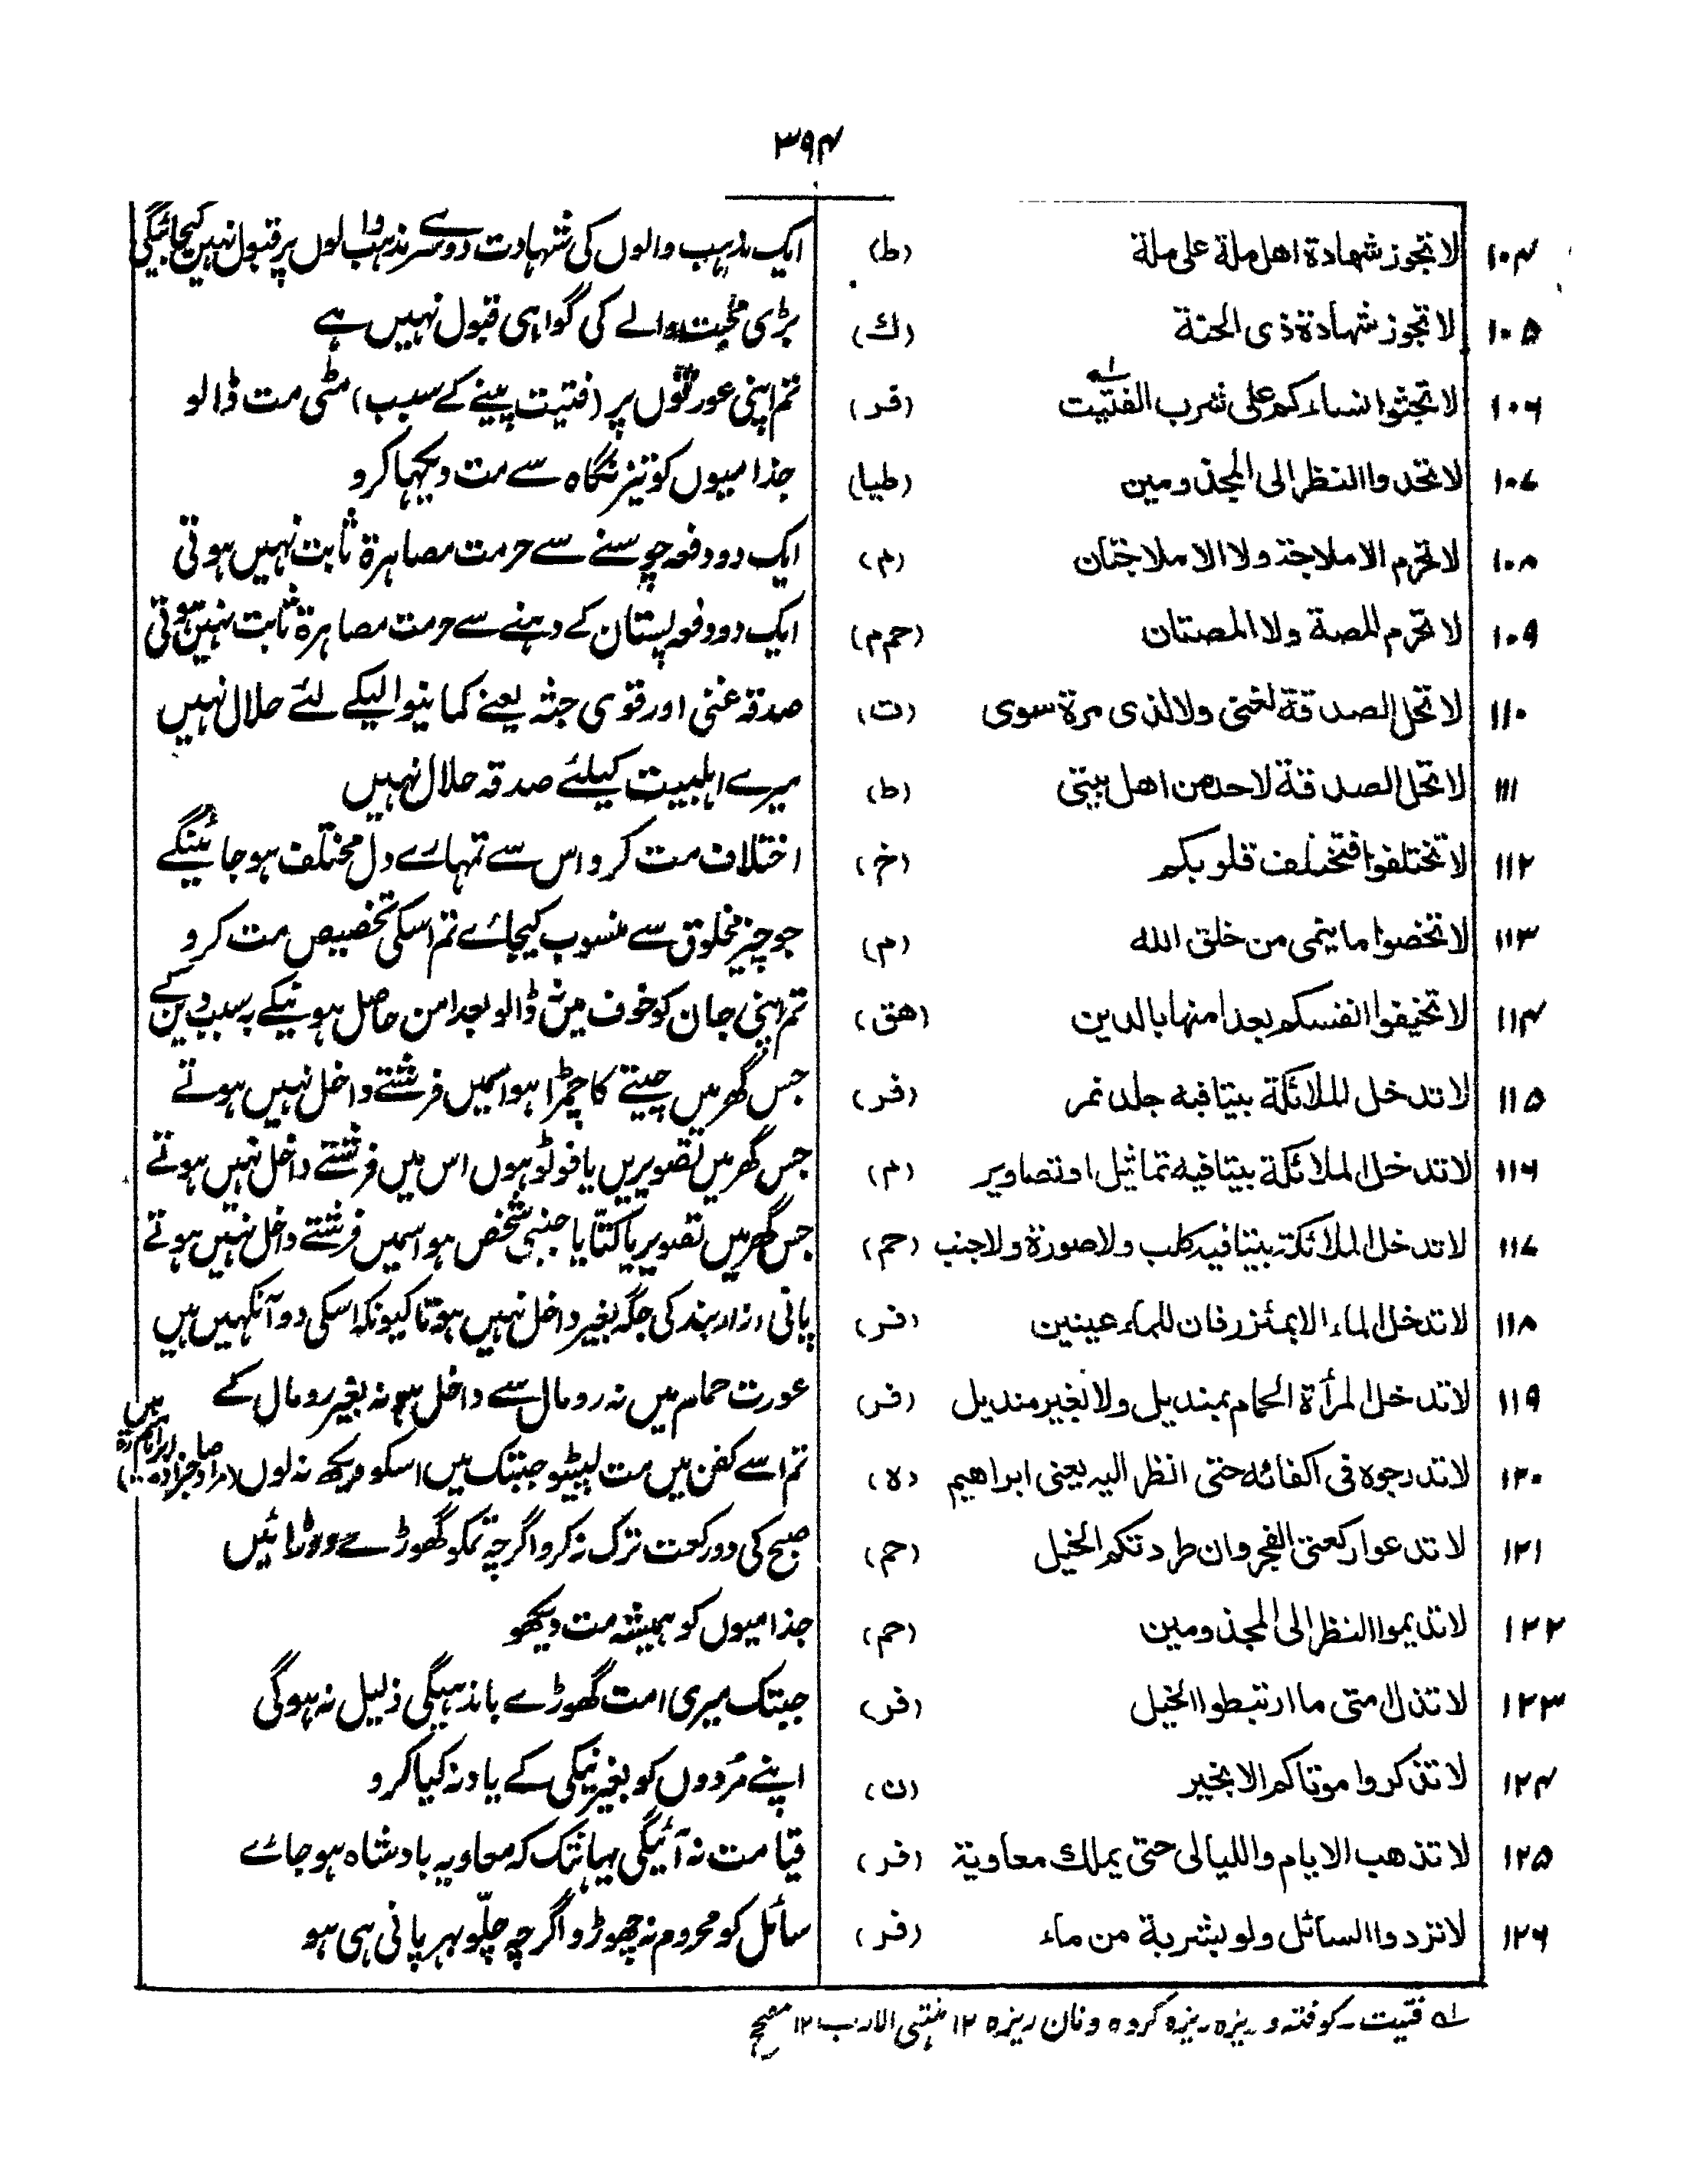 ۳۹۴
۱۰۴ لا تجوز شهادة اهل ملة على ملة (ط) ایک مذہب والوں کی شہادت دوسرے مذہب والوں پر قبول نہیں کیجائیگی
۱۰۵ لا تجوز شهادة ذى الحنة (ك) بڑی محبت والے کی گواہی قبول نہیں ہے
۱۰۶ لا تحثوا نساءكم على شرب الفتيت ؂۱ (فر) تم اپنی عورتوں پر (فتیت پینے کے سبب) مٹی مت ڈالو
۱۰۷ لا تحدوا النظر الى المجذومين (طيا) جذامیوں کو تیز نگاہ سے مت دیکہا کرو
۱۰۸ لا تحرم الاملاجة ولا الاملاجتان (م) ایک دو دفعہ چوسنے سے حرمت مصاہرۃ ثابت نہیں ہوتی
۱۰۹ لا تحرم المصة ولا المصتان (حم م) ایک دو دفعہ پستان کے دہنے سے حرمت مصاہرۃ ثابت نہیں ہوتی
۱۱۰ لا تحل الصدقة لغنى ولا لذى مرة سوى (ت) صدقہ غنی اور قوی جثہ یعنے کمانیوالیکے لئے حلال نہیں
۱۱۱ لا تحل الصدقة لاحد من اهل بيتى (ط) میرے اہلبیت کیلئے صدقہ حلال نہیں
۱۱۲ لا تختلفوا فتختلف قلوبكم (خ) اختلاف مت کرو اس سے تمہارے دل مختلف ہوجائینگے
۱۱۳ لا تخصوا ما ينمى من خلق الله (م) جو چیز مخلوق سے منسوب کیجائے تم اسکی تخصیص مت کرو
۱۱۴ لا تخيفوا انفسكم بعد امنها بالدين (هق) تم اپنی جان کو خوف میں نہ ڈالو بعد امن حاصل ہونیکے بہ سبب دین کے
۱۱۵ لا تدخل الملائكة بيتا فيه جلد نمر (فر) جس گھر میں چیتے کا چمڑا ہو اسمیں فرشتے داخل نہیں ہوتے
۱۱۶ لا تدخل الملائكة بيتا فيه تماثيل او تصاوير (م) جس گھر میں تصویریں یا فوٹو ہوں اس میں فرشتے داخل نہیں ہوتے
۱۱۷ لا تدخل الملائكة بيتا فيه كلب ولا صورة ولا جنب (حم) جس گھر میں تصویر یا کتّا یا جنبی شخص ہو اسمیں فرشتے داخل نہیں ہوتے
۱۱۸ لا تدخل الماء الا بمئزر فان للماء عينين (فر) پانی ازار بند کی جگہ بغیر داخل نہیں ہوتا کیونکہ اسکی دو آنکہیں ہیں
۱۱۹ لا تدخل المرأة الحمام بمنديل ولا بغير منديل (فر) عورت حمام میں نہ رومال سے داخل ہو نہ بغیر رومال کے
۱۲۰ لا تدرجوه فى اكفانه حتى انظر اليه يعنى ابراهيم (ه) تم اسے کفن میں مت لپیٹو جبتک میں اسکو دیکھ نہ لوں (مراد صاحبزادہ ابراہیم ہیں)
۱۲۱ لا تدعوا ركعتى الفجر وان طردتكم الخيل (حم) صبح کی دو رکعت ترک نہ کرو اگرچہ تمکو گھوڑے دوڑائیں
۱۲۲ لا تديموا النظر الى المجذومين (حم) جذامیوں کو ہمیشہ مت دیکھو
۱۲۳ لا تذل امتى ما ارتبطوا الخيل (فر) جبتک میری امت گھوڑے باندہیگی ذلیل نہ ہوگی
۱۲۴ لا تذكروا موتاكم الا بخير (ن) اپنے مُردوں کو بغیر نیکی کے یاد نہ کیا کرو
۱۲۵ لا تذهب الايام والليالى حتى يملك معاوية (فر) قیامت نہ آئیگی یہانتک کہ معاویہ بادشاہ ہوجائے
۱۲۶ لا تردوا السائل ولو بشربة من ماء (فر) سائل کو محروم نہ چھوڑو اگرچہ چلّو بہر پانی ہی ہو
؂۱ فتیت۔ کوفتہ و ریزہ ریزہ کردہ و نان ریزہ ۱۲ منتہی الارب ۱۲ مصحح